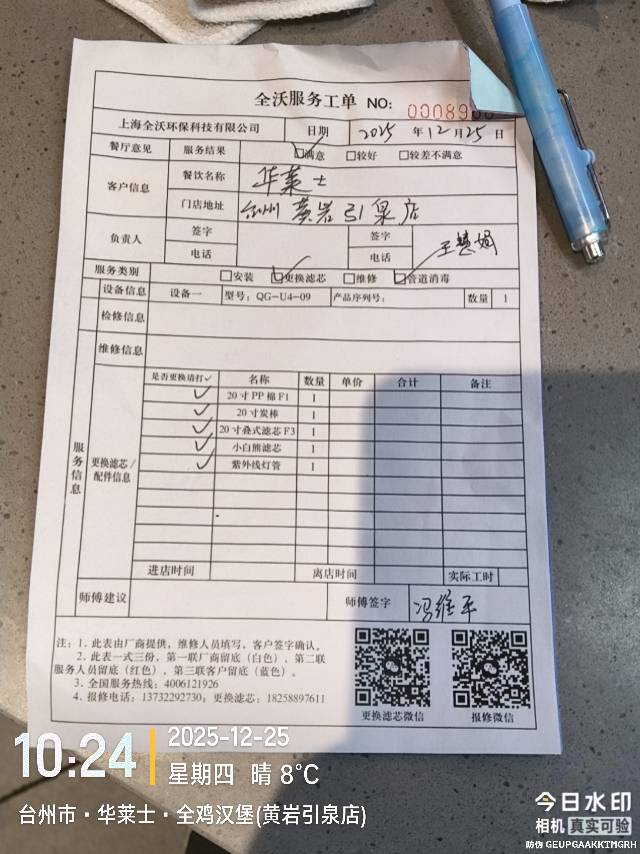 全沃服务工单 NO: 00089
上海全沃环保科技有限公司 日期 2025 年 12 月 25 日
餐厅意见 服务结果 满意 较好 较差不满意
客户信息 餐饮名称 华莱士
门店地址 台州 黄岩引泉店
负责人 签字 签字 王慧娟
电话 电话
服务类别 安装 更换滤芯 维修 管道消毒
服务信息
设备信息 设备一 型号：QG-U4-09 产品序列号： 数量 1
检修信息
维修信息
更换滤芯/配件信息
是否更换请打✓ 名称 数量 单价 合计 备注
✓ 20寸PP棉F1 1
✓ 20寸炭棒 1
✓ 20寸叠式滤芯F3 1
✓ 小白熊滤芯 1
✓ 紫外线灯管 1
进店时间 离店时间 实际工时
师傅建议 师傅签字 冯维平
注：1．此表由厂商提供，维修人员填写，客户签字确认。
2．此表一式三份，第一联厂商留底（白色），第二联
服务人员留底（红色），第三联客户留底（蓝色）。
3．全国服务热线：4006121926
4．报修电话：13732292730；更换滤芯：18258897611
更换滤芯微信 报修微信
10:24 2025-12-25
星期四 晴 8℃
台州市·华莱士·全鸡汉堡(黄岩引泉店)
今日水印
相机 真实可验
防伪 GEUPGAAKKTMGRH